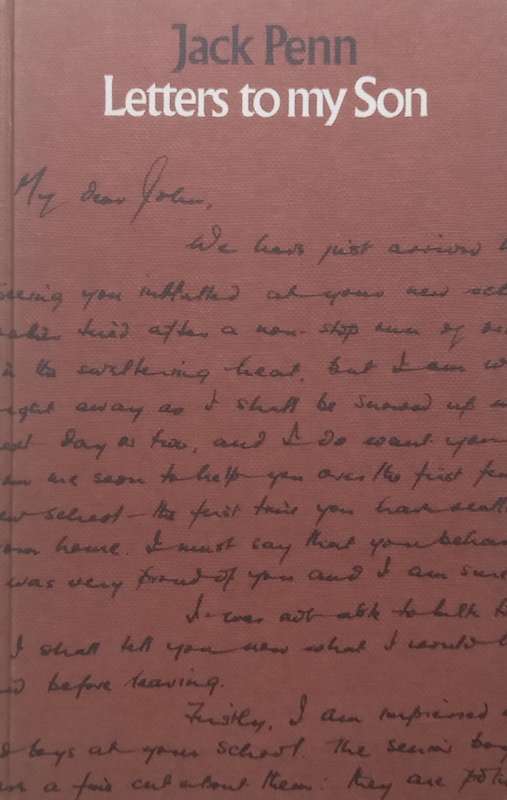 Jack Penn
Letters to my Son
My dear John,
We have just arrived
seeing you installed at your new
tired after a non-stop run of
in the sweltering heat, but I am
right away as I shall be snowed up
day or two, and I do want you
me soon to help you over the first few
new school - the first time you have really
home. I must say that you behav
was very proud of you and I am sure
I was not able to talk
I shall tell you now what I would
before leaving.
Firstly, I am impressed
boys at your school. The senior boy
a fine cut about them: they are